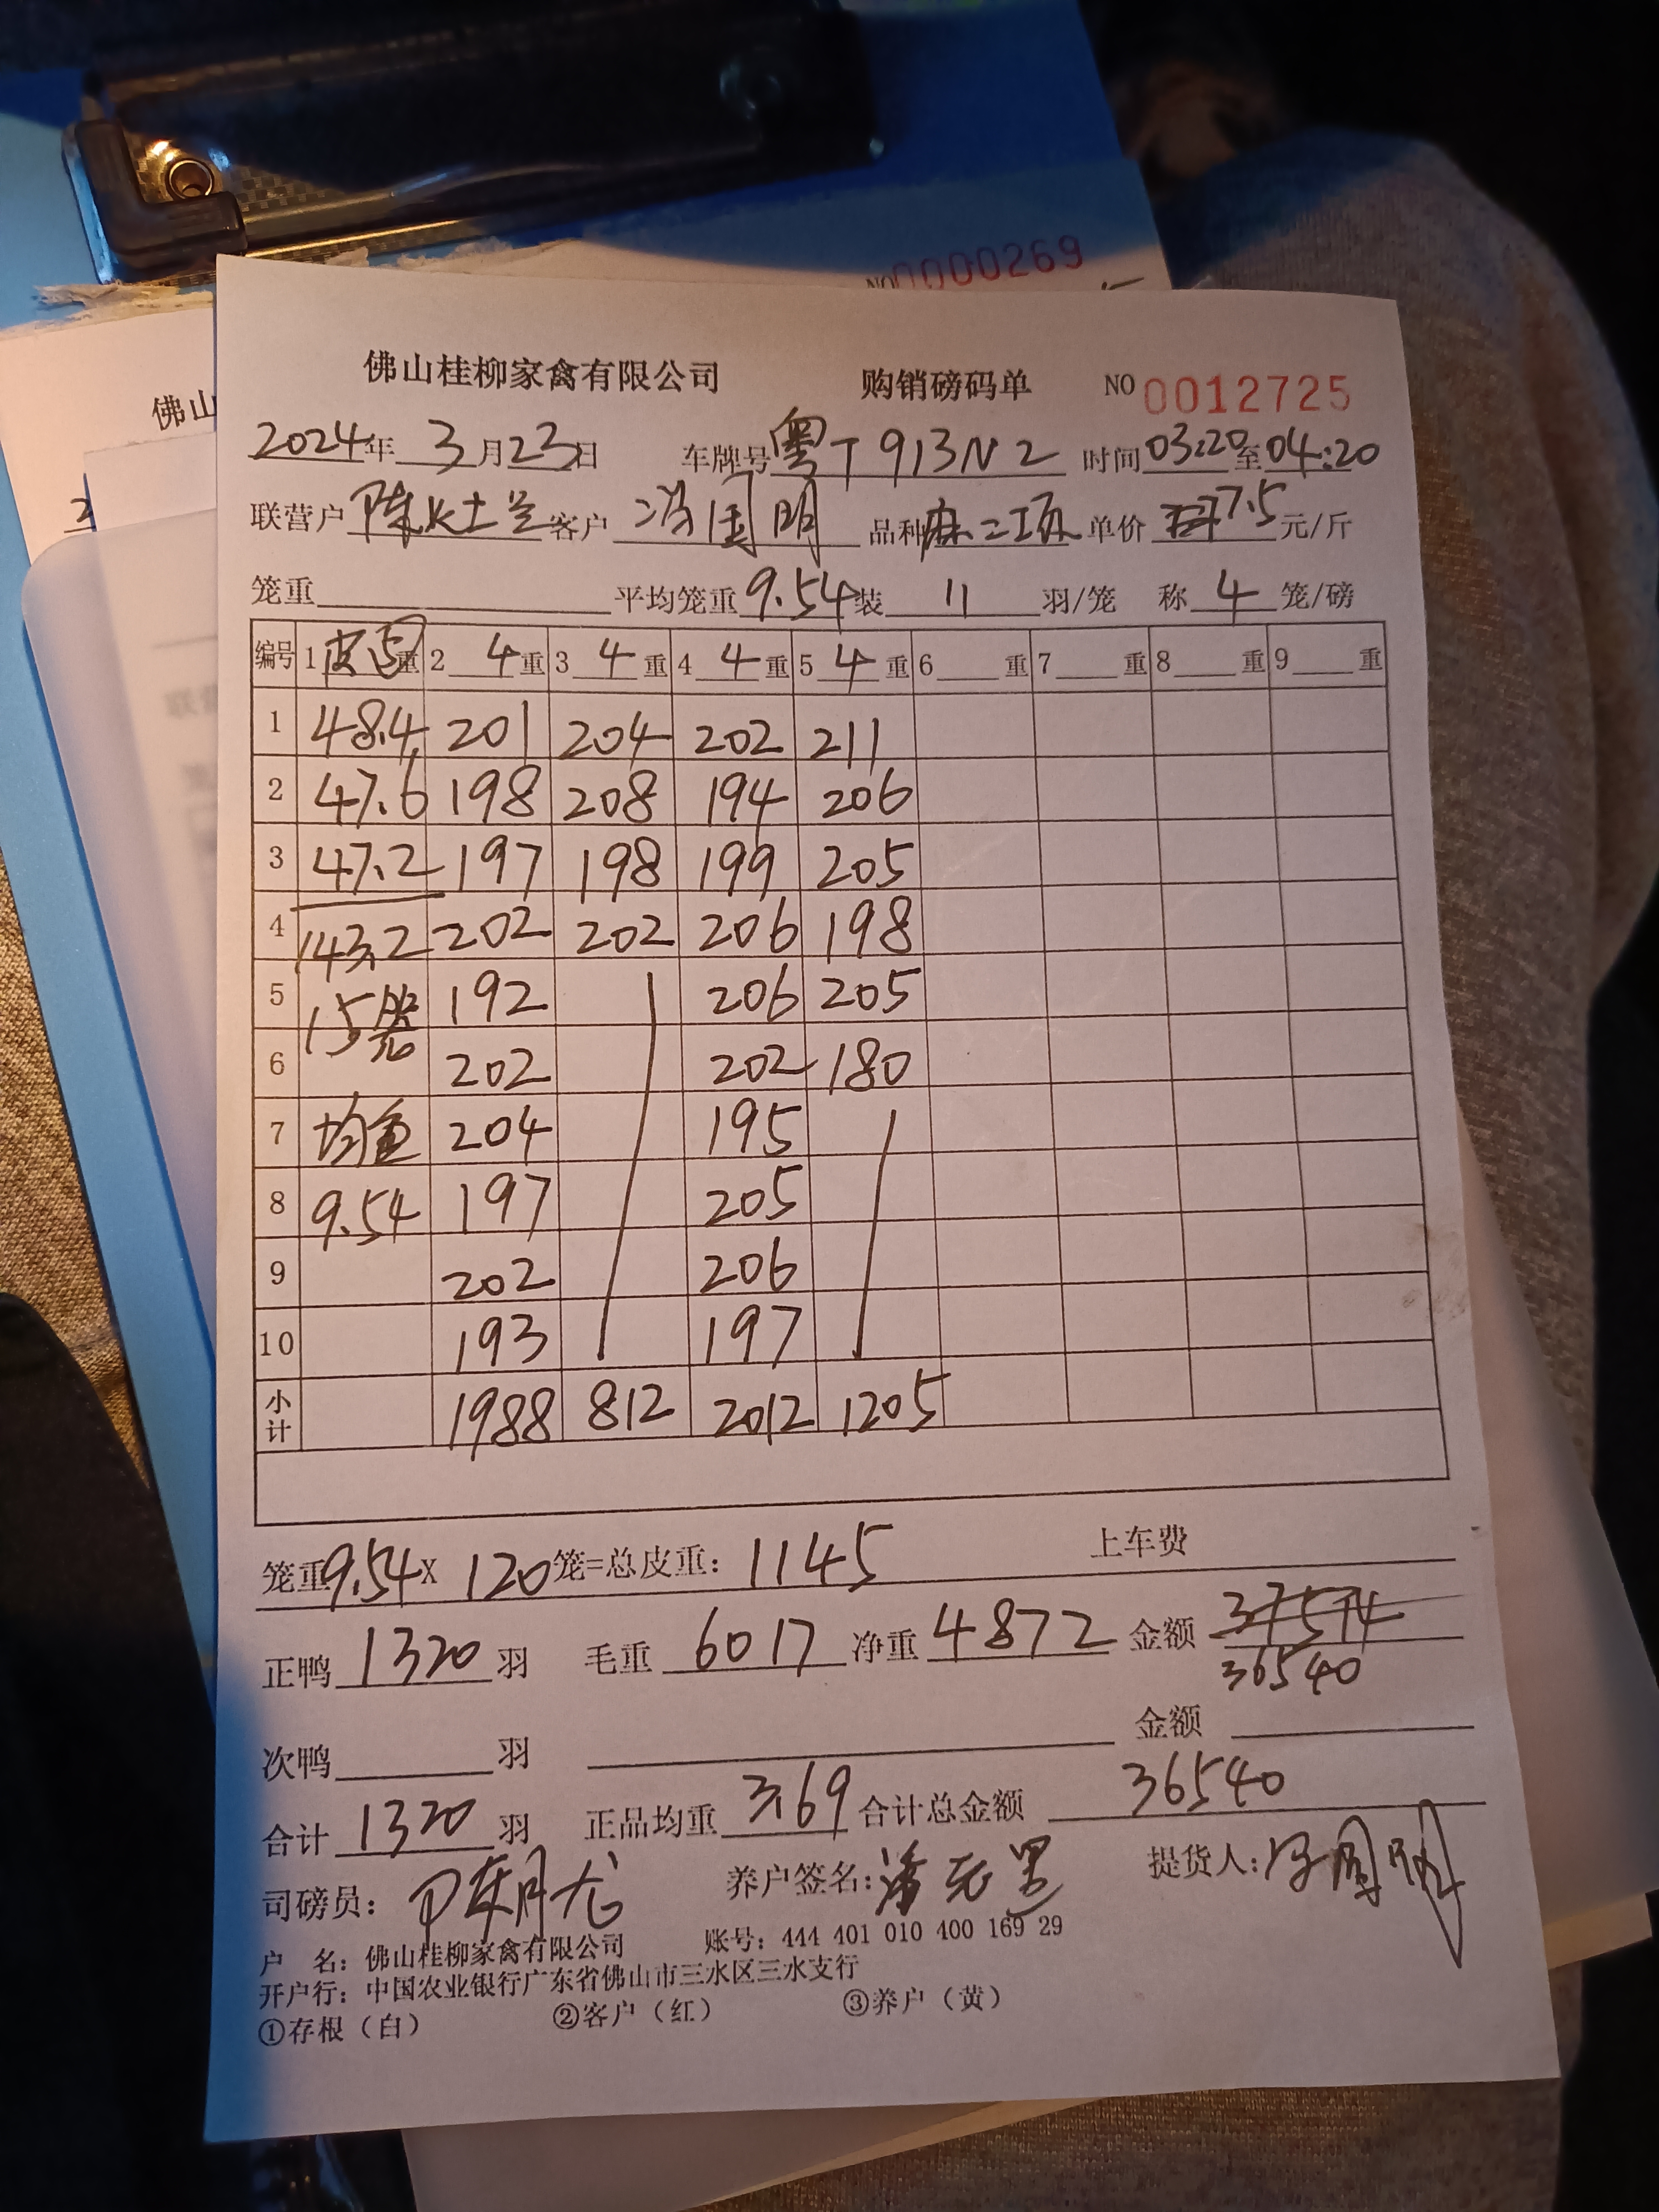 NO 0000269
佛山
佛山桂柳家禽有限公司 购销磅码单 NO 0012725
2024年 3月23日 车牌号 粤T913N2 时间 03:20至04:20
联营户 陈 客户 国明 品种 单价 7.5 元/斤
笼重 平均笼重 9.54 装 11 羽/笼 称 4 笼/磅
编号 1 皮 重 2 4 重 3 4 重 4 4 重 5 4 重 6 重 7 重 8 重 9 重
1 48.4 201 204 202 211
2 47.6 198 208 194 206
3 47.2 197 198 199 205
4 143.2 202 202 206 198
5 15笼 192 206 205
6 202 202 180
7 均重 204 195
8 9.54 197 205
9 202 206
10 193 197
小计 1988 812 2012 1205
笼重 9.54 X 120 笼=总皮重: 1145 上车费
正鸭 1320 羽 毛重 6017 净重 4872 金额 37574
36540
次鸭 羽 金额
合计 1320 羽 正品均重 3.69 合计总金额 36540
司磅员: 养户签名: 提货人:
户 名: 佛山桂柳家禽有限公司 账号: 444 401 010 400 169 29
开户行: 中国农业银行广东省佛山市三水区三水支行
①存根（白） ②客户（红） ③养户（黄）